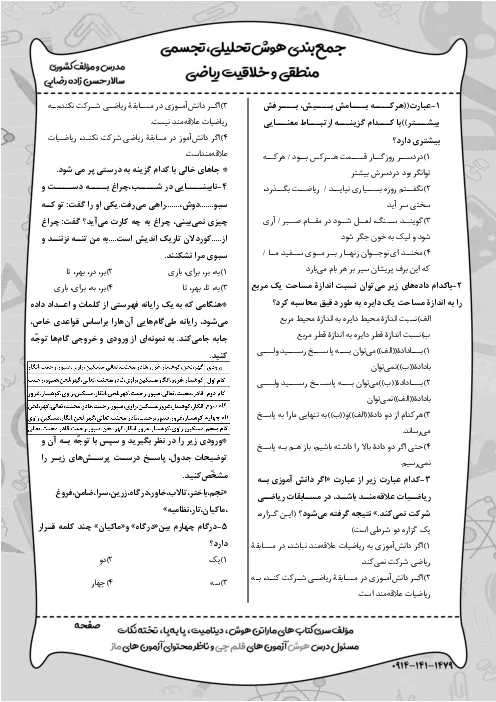 جمع‌بندی هوش تحلیلی، تجسمی
منطقی و خلاقیت ریاضی
مدرس و مؤلف کشوری
سالار حسن زاده رضایی
۱-عبارت((هرکـــه بـــامش بـــیش، بـــرفش
بیشـــتر))با کـــدام گزینـــه ارتبـــاط معنـــایی
بیشتری دارد؟
۱)دردســر روزگــار قســمت هــرکس بــود / هرکـه
توانگر بود دردسرش بیشتر
۲)نگفتــم روزه بســیاری نپایــد / ریاضــت بگــذرد،
سختی سر آید
۳)گوینـد سـنگ لعـل شـود در مقـام صبـر / آری
شود و لیک به خون جگر شود
۴)مخنــد ای نوجــوان زنهــار بــر مــوی سـفید مـا /
که این برف پریشان سیر بر هر بام می‌بارد
۲-باکدام داده‌های زیر می‌توان نسبت اندازهٔ مساحت یک مربع
را به اندازهٔ مساحت یک دایره به طور دقیق محاسبه کرد؟
الف)نسبت اندازهٔ محیط دایره به اندازهٔ محیط مربع
ب)نسبت اندازهٔ قطر دایره به اندازهٔ قطر مربع
۱)بـــادادهٔ((الف))می‌توان بـــه پاســـخ رســـیدولـــی
بادادهٔ((ب))نمی‌توان
۲)بـــادادهٔ((ب))می‌توان بـــه پاســـخ رســـید ولـــی
بادادهٔ((الف))نمی‌توان
۳)هرکدام از دو دادهٔ((الف))و((ب)) به تنهایی مارا به پاسخ
می‌رساند.
۴)حتی اگر دو دادهٔ بالا را داشته باشیم، باز هـم به پاسخ
نمی‌رسیم.
۳-کدام عبارت زیر از عبارت «اگر دانش آموزی بـه
ریاضـیات علاقه‌منـد باشـد، در مسـابقات ریاضـی
شرکت نمی‌کند.» نتیجه گرفته می‌شود؟ (این گـزاره،
یک گزاره دو شرطی است)
۱)اگر دانش‌آموزی به ریاضیات علاقه‌مند نباشد، در مسابقهٔ
ریاضی شرکت نمی‌کند.
۲)اگـر دانش‌آمـوزی در مسـابقهٔ ریاضـی شـرکت کنـد، بـه
ریاضیات علاقه‌مند است.
۳)اگــر دانش‌آمــوزی در مسـابقهٔ ریاضـی شـرکت نکندبـه
ریاضیات علاقه‌مند نیست.
۴)اگر دانش‌آموز در مسابقهٔ ریاضی شرکت نکنـد، ریاضـیات
علاقه‌منداست
* جاهای خالی با کدام گزینه به درستی پر می شود.
۴-نابینـــایی در شـــب،چراغ بـــه دســـت و
سبو....دوش،......راهی می‌رفت.یکی او را گفت: تو کـه
چیزی نمی‌بینی، چراغ به چه کارت می‌آید؟ گفت: چراغ
از.....کوردلان تاریک اندیش است....به من تنـه نزننـد و
سبوی مرا نشکنند.
۱)به، بر، برای، باری ۲)بر، در، بهر، تا
۳)به، تا، بهر، تا ۴)بر، به، برای، باری
*هنگامی که به یک رایانه فهرستی از کلمات و اعداد داده
می‌شود، رایانه طی‌گام‌هایی آن‌هارا براساس قواعدی خاص،
جابه جامی‌کند. به نمونه‌ای از ورودی و خروجی گام‌ها توجّه
کنید.
*ورودی زیر را در نظر بگیرید و سپس با توجّـه بـه آن و
توضیحات جدول، پاسـخ درسـت پرسـش‌های زیـر را
مشخّص‌کنید.
«نجم،باختر،تالاب،خاور،درگاه،زرین،سرا،ضامن،فروغ
،ماکیان،تار،نظامیه»
۵-درگام چهارم بین«درگاه» و«ماکیان» چند کلمه قـرار
دارد؟
۱)یک ۲)دو
۳)سه ۴)چهار
مؤلف سری کتاب های ماراتن هوش، دینامیت، پا به پا، تخته نکات
صفحه
مسئول درس هوش آزمون های قلم چی و ناظر محتوای آزمون های ماز
۰۹۱۴-۱۴۱-۱۴۷۹